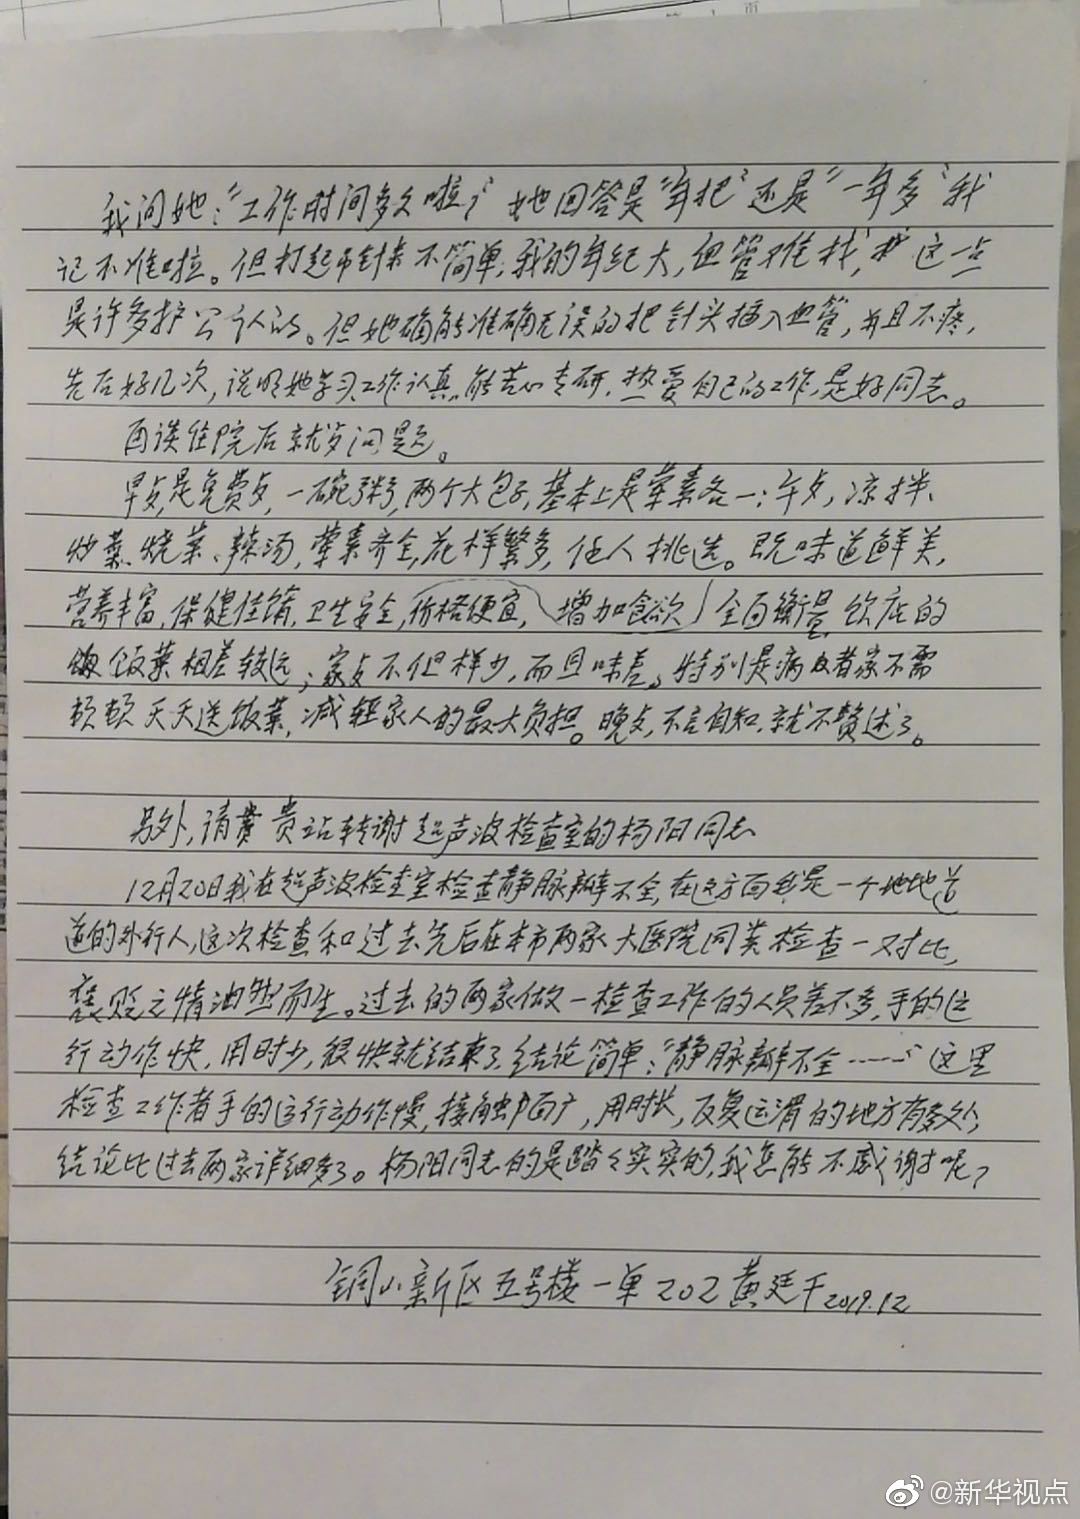 我问她："工作时间多久啦？"她回答是"年把"还是"一年多"我
记不准啦。但打起吊针来不简单，我的年纪大，血管难找，这一点
是许多护公认的。但她确能准确无误的把针头插入血管，并且不疼，
先后好几次，说明她学习工作认真，能苦心专研，热爱自己的工作，是好同志。
再谈住院后就歺问题。
早歺是免费歺，一碗粥，两个大包子，基本上是荤素各一；午歺，凉拌、
炒菜、烧菜、辣汤，荤素齐全，花样繁多，任人挑选。既味道鲜美，
营养丰富，保健佳肴，卫生安全，价格便宜，增加食欲，全面衡量，饮店的
饭菜相差较远；家歺不但样少，而且味差。特别是病者家不需
顿顿天天送饭菜，减轻家人的最大负担。晚歺，不言自知，就不赘述了。
另外，请贵站转谢超声波检查室的杨阳同志
12月20日我在超声波检查室检查静脉瓣不全，在这方面我是一个地地道
道的外行人，这次检查和过去先后在本市两家大医院同类检查一对比，
褒贬之情油然而生。过去的两家做一检查工作的人员差不多，手的运
行动作快，用时少，很快就结束了，结论简单："静脉瓣不全……"这里
检查工作者手的运行动作慢，接触面广，用时长，反复运滑的地方有多处，
结论比过去两家详细多了。杨阳同志的是踏々实实的，我怎能不感谢呢？
铜山新区五号楼一单202黄廷干2019.12
@新华视点